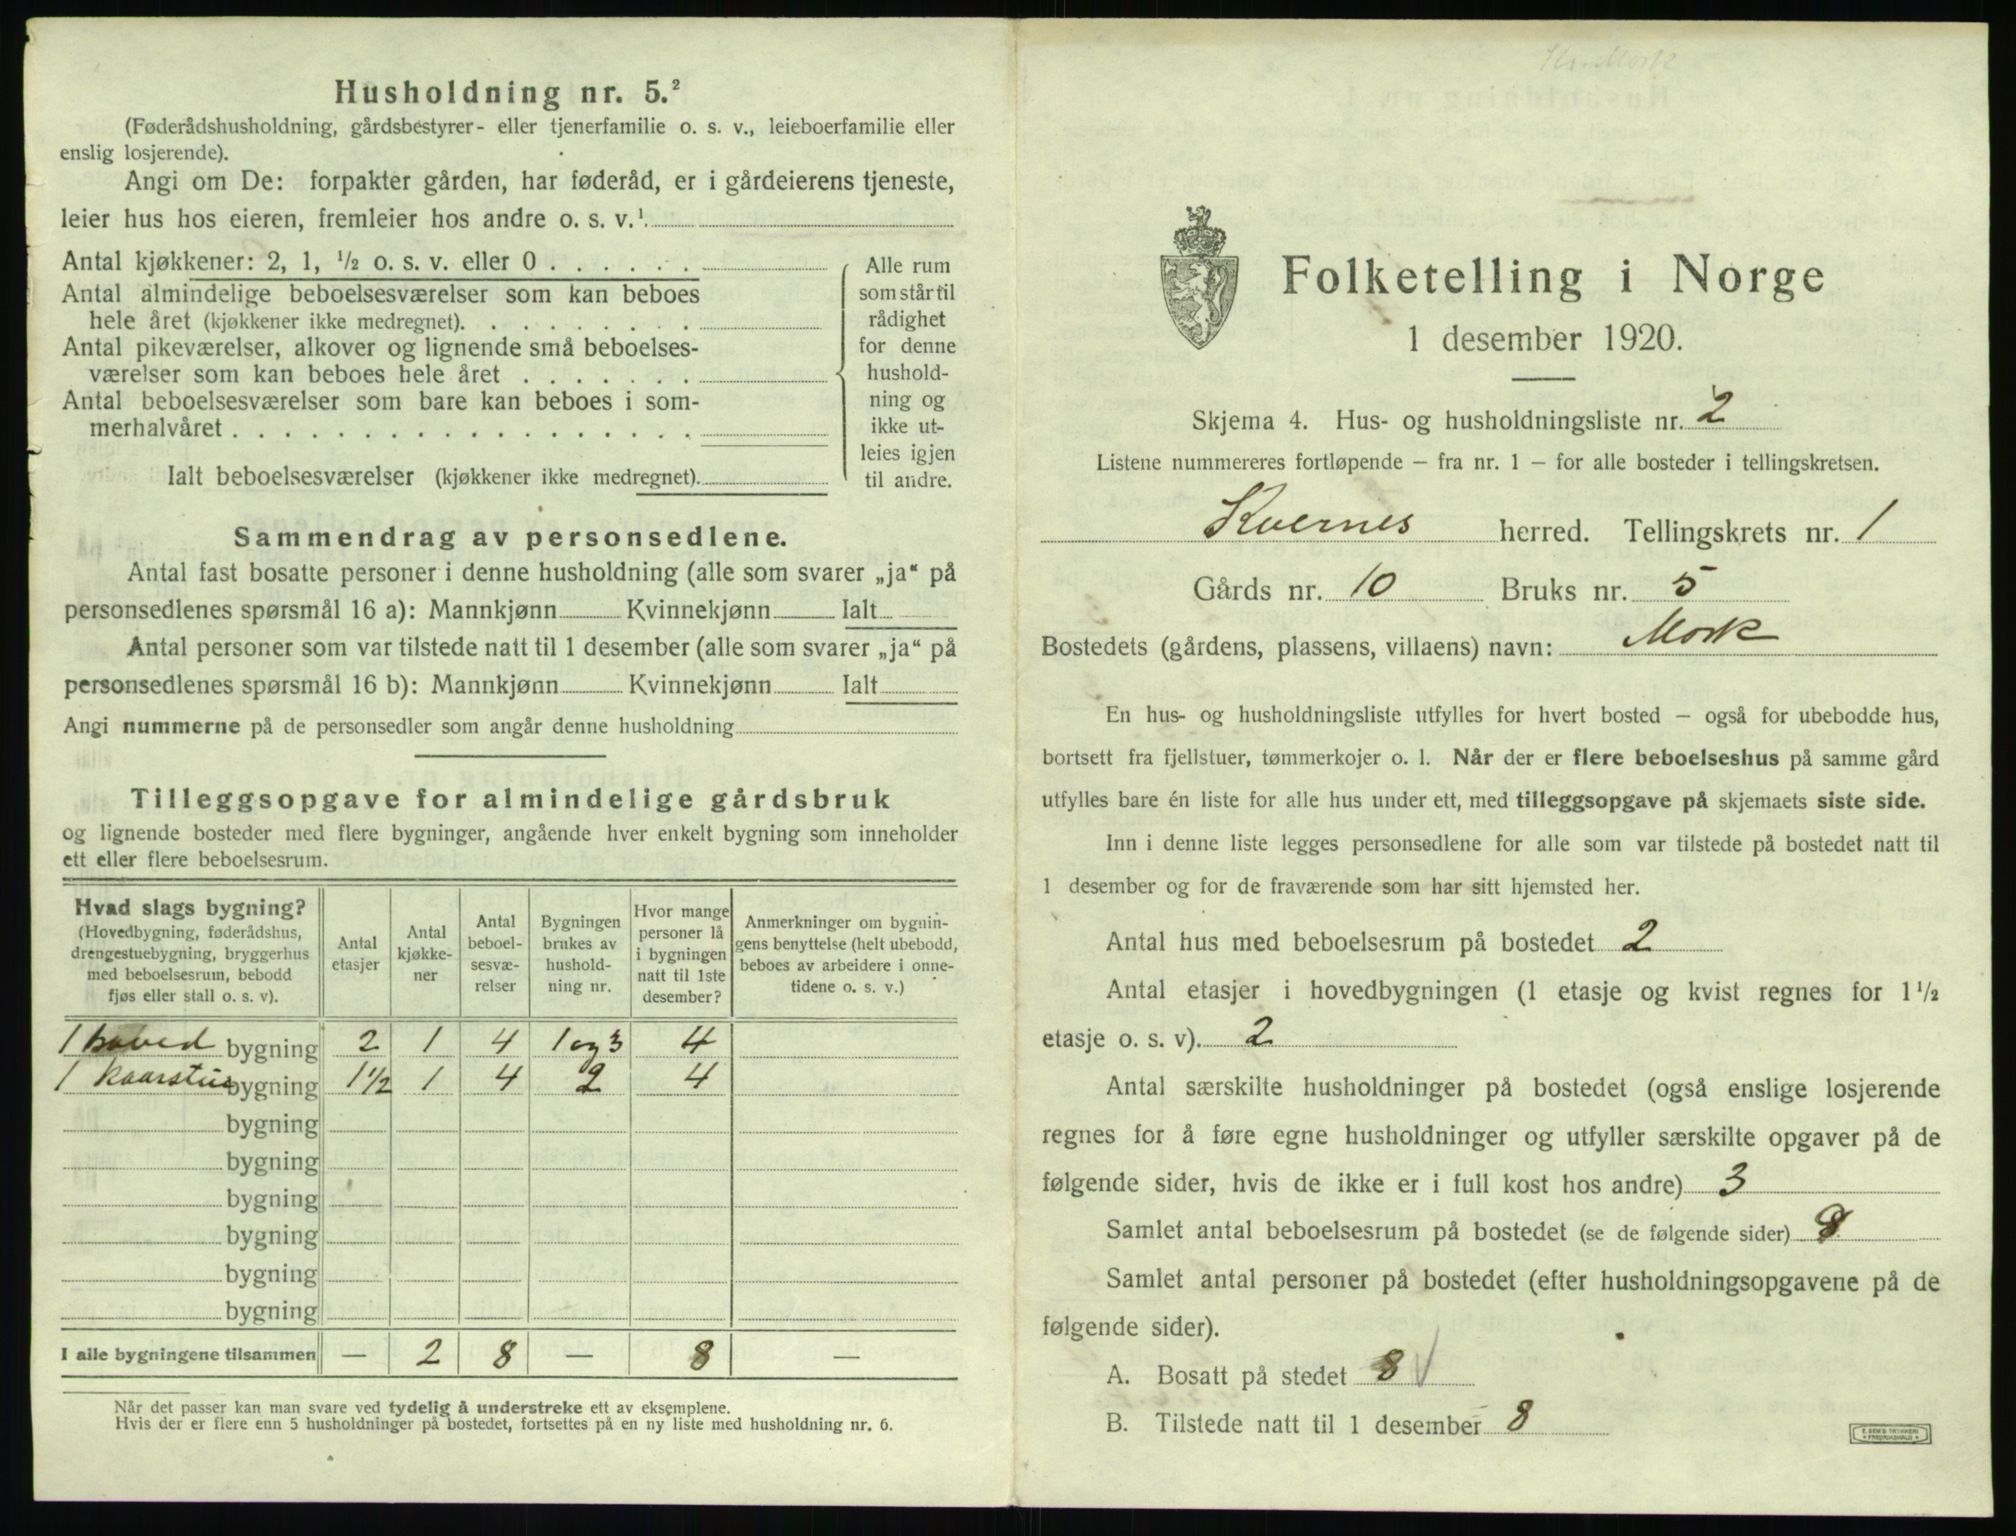 Husholdning nr. 5.²
(Føderådshusholdning, gårdsbestyrer- eller tjenerfamilie o. s. v., leieboerfamilie eller
enslig losjerende).
Angi om De: forpakter gården, har føderåd, er i gårdeierens tjeneste,
leier hus hos eieren, fremleier hos andre o. s. v.¹
Antal kjøkkener: 2, 1, ½ o. s. v. eller 0 . . . . . .
Antal almindelige beboelsesværelser som kan beboes
hele året (kjøkkener ikke medregnet). . . . . . . . .
Antal pikeværelser, alkover og lignende små beboelses-
værelser som kan beboes hele året . . . . . . .
Antal beboelsesværelser som bare kan beboes i som-
merhalvåret . . . . . . . . . . . . . . . . . .
Ialt beboelsesværelser (kjøkkener ikke medregnet).
Alle rum
som står til
rådighet
for denne
hushold-
ning og
ikke ut-
leies igjen
til andre.
Sammendrag av personsedlene.
Antal fast bosatte personer i denne husholdning (alle som svarer „ja“ på
personsedlenes spørsmål 16 a): Mannkjønn Kvinnekjønn Ialt
Antal personer som var tilstede natt til 1 desember (alle som svarer „ja“ på
personsedlenes spørsmål 16 b): Mannkjønn Kvinnekjønn Ialt
Angi nummerne på de personsedler som angår denne husholdning
Tilleggsopgave for almindelige gårdsbruk
og lignende bosteder med flere bygninger, angående hver enkelt bygning som inneholder
ett eller flere beboelsesrum.
Hvad slags bygning?
(Hovedbygning, føderådshus,
drengestuebygning, bryggerhus
med beboelsesrum, bebodd
fjøs eller stall o. s. v).
Antal
etasjer
Antal
kjøkke-
ner
Antal
beboel-
sesvæ-
relser
Bygningen
brukes av
hushold-
ning nr.
Hvor mange
personer lå
i bygningen
natt til 1ste
desember?
Anmerkninger om bygnin-
gens benyttelse (helt ubebodd,
beboes av arbeidere i onne-
tidene o. s. v.)
1 hoved bygning 2 1 4 1 og 3 4
1 kaarstue bygning 1½ 1 4 2 4
bygning
bygning
bygning
bygning
bygning
bygning
I alle bygningene tilsammen — 2 8 — 8 —
Når det passer kan man svare ved tydelig å understreke ett av eksemplene.
Hvis der er flere enn 5 husholdninger på bostedet, fortsettes på en ny liste med husholdning nr. 6.
Folketelling i Norge
1 desember 1920.
Skjema 4. Hus- og husholdningsliste nr. 2
Listene nummereres fortløpende — fra nr. 1 — for alle bosteder i tellingskretsen.
Kvernes herred. Tellingskrets nr. 1
Gårds nr. 10 Bruks nr. 5
Bostedets (gårdens, plassens, villaens) navn: Mork
En hus- og husholdningsliste utfylles for hvert bosted — også for ubebodde hus,
bortsett fra fjellstuer, tømmerkojer o. l. Når der er flere beboelseshus på samme gård
utfylles bare én liste for alle hus under ett, med tilleggsopgave på skjemaets siste side.
Inn i denne liste legges personsedlene for alle som var tilstede på bostedet natt til
1 desember og for de fraværende som har sitt hjemsted her.
Antal hus med beboelsesrum på bostedet 2
Antal etasjer i hovedbygningen (1 etasje og kvist regnes for 1½
etasje o. s. v). 2
Antal særskilte husholdninger på bostedet (også enslige losjerende
regnes for å føre egne husholdninger og utfyller særskilte opgaver på de
følgende sider, hvis de ikke er i full kost hos andre) 3
Samlet antal beboelsesrum på bostedet (se de følgende sider) 8
Samlet antal personer på bostedet (efter husholdningsopgavene på de
følgende sider).
A. Bosatt på stedet 8
B. Tilstede natt til 1 desember 8